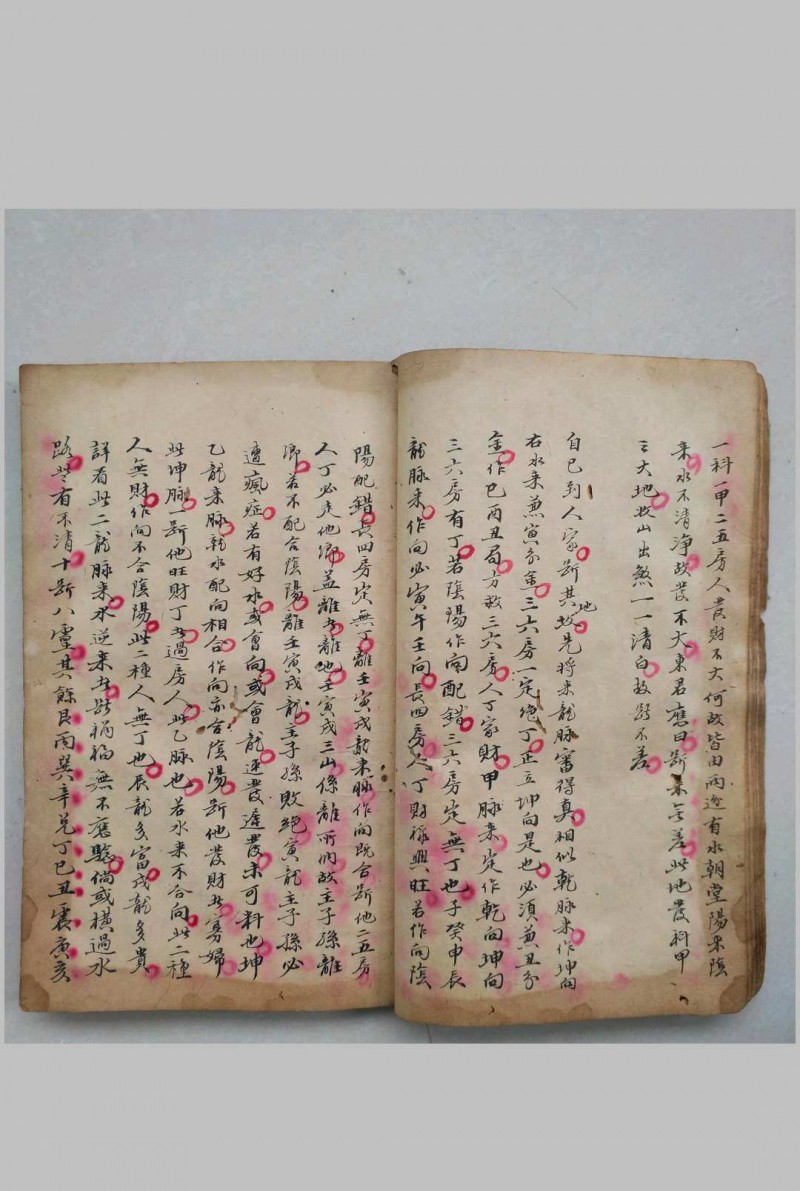 一科一甲二五房人丁發財不大何故皆由兩边有水朝堂陽来陰
来水不清净故發不大東君應曰斷来無差此地發科甲
三大地收山出煞一一清白救貧不差
自已到人家斷其坟地先將来龍脉審得真相似乾脉来作坤向
右水来兼寅分金三六房一定絕丁正立坤向是也必須兼丑分
金作巳酉丑局方救三六房人丁家財甲脉来定作乾向坤向
三六房有丁若陰陽作向配錯三六房定無丁也子癸申辰
龍脉来作向必寅午壬向長四房人丁財禄興旺若作向陰
陽配錯長四房定無丁離壬寅戌龍来脉作向既合斷他二五房
人丁必走他鄉盖離者離也壬寅戌三山係離所納故主子孫離
鄉若不配合陰陽離壬寅戌龍主子孫敗絕寅龍主子孫必
遭瘋症若有好水或會向或會龍速發遲發未可料也坤
乙龍来脉乾水配向相合作向亦合陰陽斷他發財出寡婦
此坤脉一斷他旺財丁出過房人此乙脉也若水来不合向此二種
人無財作向不合陰陽此二種人無丁也辰龍多富戌龍多貴
詳看此二龍脉来水逆来者斷禍福無不應驗倘或橫過水
路些有不清十斷八靈其餘艮丙巽辛兑丁巳丑震庚亥